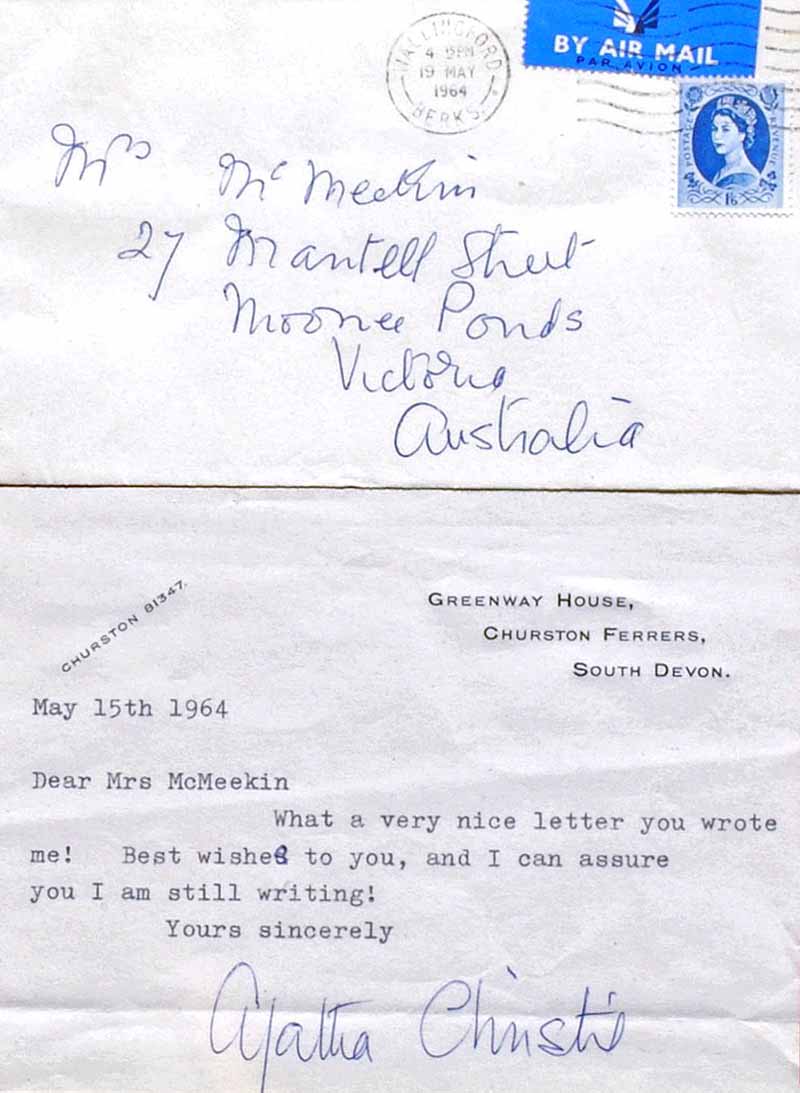 WALLINGFORD
4. 15PM
19 MAY
1964
BERKS.
BY AIR MAIL
PAR AVION
POSTAGE
REVENUE
1/6
Mrs McMeekin
27 Mantell Street
Moonee Ponds
Victoria
Australia
CHURSTON 81347.
GREENWAY HOUSE,
CHURSTON FERRERS,
SOUTH DEVON.
May 15th 1964
Dear Mrs McMeekin
What a very nice letter you wrote
me! Best wishes to you, and I can assure
you I am still writing!
Yours sincerely
Agatha Christie